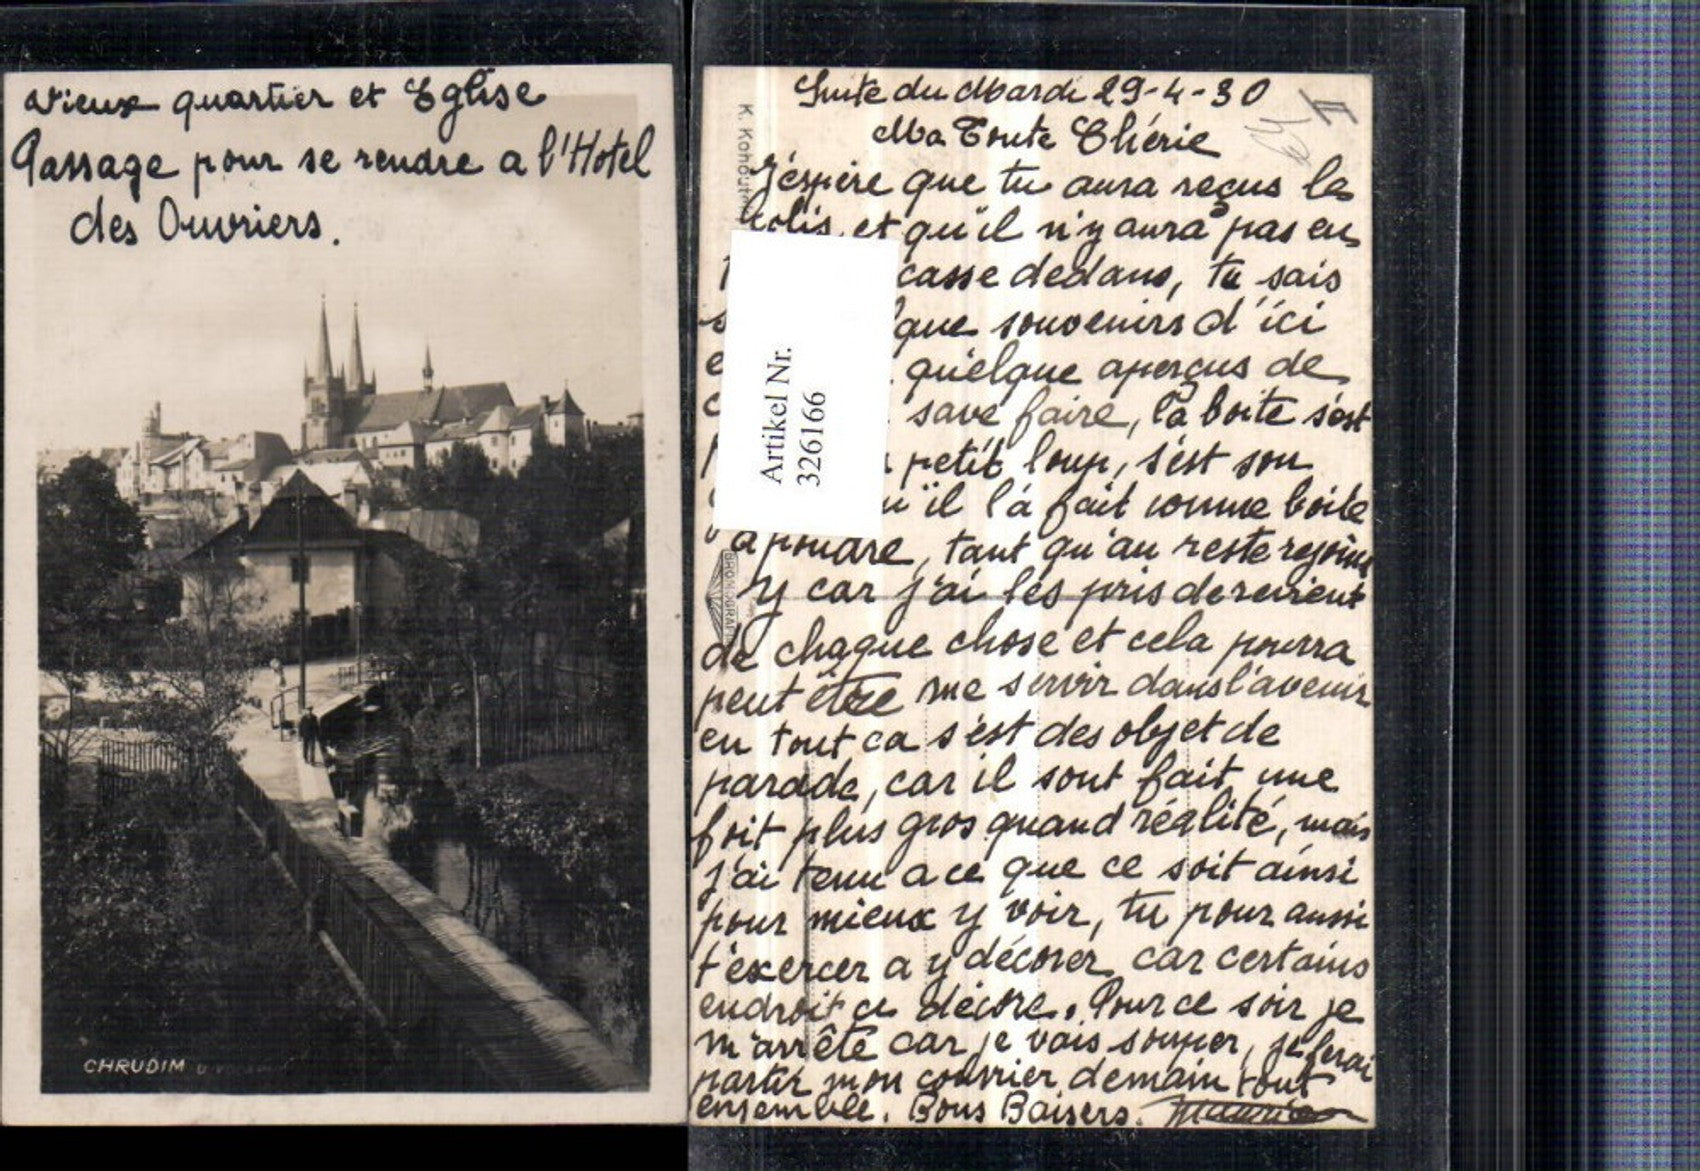 Vieux quartier et Eglise
Passage pour se rendre a l'Hotel
des Ouvriers.
CHRUDIM
Suite du Mardi 29-4-30
II
Ma Toute Chérie
K. Kohout
J'éspére que tu aura reçus le
Colis, et qu'il n'y aura pas eu
casse dedans, tu sais
que souvenirs d'ici
quélque aperçus de
save faire, la boite s'est
petit loup, s'est son
il l'a fait comme boite
a poudre, tant qu'au reste
y car j'ai les pris de revient
de chaque chose et cela pourra
peut être me servir dans l'avenir
en tout ca s'est des objet de
parade, car il sont fait une
foit plus gros quand réalité, mais
j'ai tenu a ce que ce soit ainsi
pour mieux y voir, tu pour aussi
t'exercer a y décorer car certains
endroit ce décore. Pour ce soir je
m'arrête car je vais souper, je ferai
partir mon courrier demain tout
ensemble. Bons Baisers. Maurice
Artikel Nr.
3261166